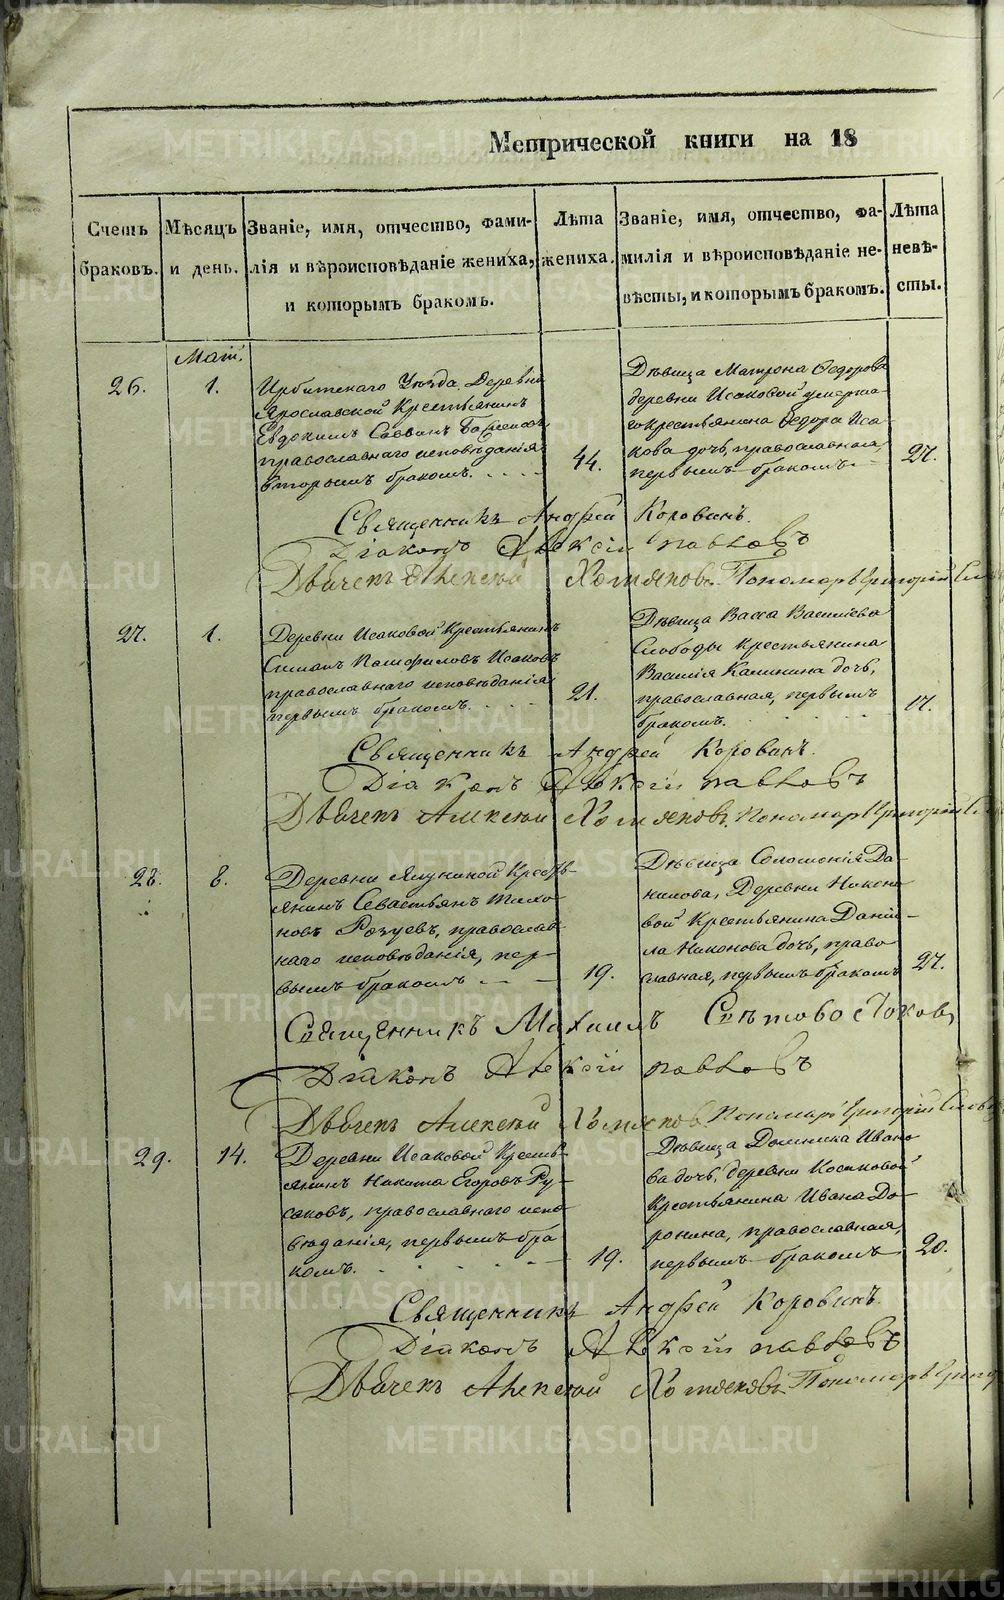 Метрической книги на 18
Счетъ браковъ.
Мѣсяцъ и день.
Званіе, имя, отчество, фами-
лія и вѣроисповѣданіе жениха,
и которымъ бракомъ.
Лѣта жениха.
Званіе, имя, отчество, фа-
милія и вѣроисповѣданіе не-
вѣсты, и которымъ бракомъ.
Лѣта невѣ-
сты.
Маій.
26.
1.
Ирбитскаго Уѣзда Деревни
Ярославской Крестьянинъ
Евдокимъ Саввинъ
православнаго исповѣданія
вторымъ бракомъ.
44.
Дѣвица Матрона Ѳедорова
деревни Исаковой умерша
го крестьянина Ѳедора Иса-
кова дочь, православная,
первымъ бракомъ.
27.
Священникъ Андрей Коровинъ.
Діаконъ Алексій Павловъ
Дьячекъ Алексѣй Хотяновъ. Пономарь Григорій
27.
1.
Деревни Исаковой Крестьянинъ
Симанъ Исаковъ
православнаго исповѣданія
первымъ бракомъ.
21.
Дѣвица Васса Василіева
Слободы крестьянина
Василія Калинина дочь,
православная, первымъ
бракомъ.
17.
Священникъ Андрей Коровинъ.
Діаконъ Алексій Павловъ
Дьячекъ Алексѣй Хотяновъ. Пономарь Григорій
28.
8.
Деревни Ялуниной Кресть-
янинъ Севастьянъ Тихо-
новъ православ
наго исповѣданія, пер-
вымъ бракомъ
19.
Дѣвица Соломонія Да-
нилова, Деревни Никоно
вой Крестьянина Даніи-
ла Никонова дочь, право
славная, первымъ бракомъ
27.
Священникъ Михаилъ
Діаконъ Алексій Павловъ
Дьячекъ Алексѣй Хотяновъ. Пономарь Григорій
29.
14.
Деревни Исаковой Кресть-
янинъ Никита Егоровъ Ру-
саковъ, православнаго испо
вѣданія, первымъ бра
комъ.
19.
Дѣвица Домника Ивано
ва дочь, деревни Косиковой
Крестьянина Ивана До-
ронина, православная,
первымъ бракомъ
20.
Священникъ Андрей Коровинъ.
Діаконъ Алексій Павловъ
Дьячекъ Алексѣй Хотяновъ. Пономарь
METRIKI.GASO-URAL.RU